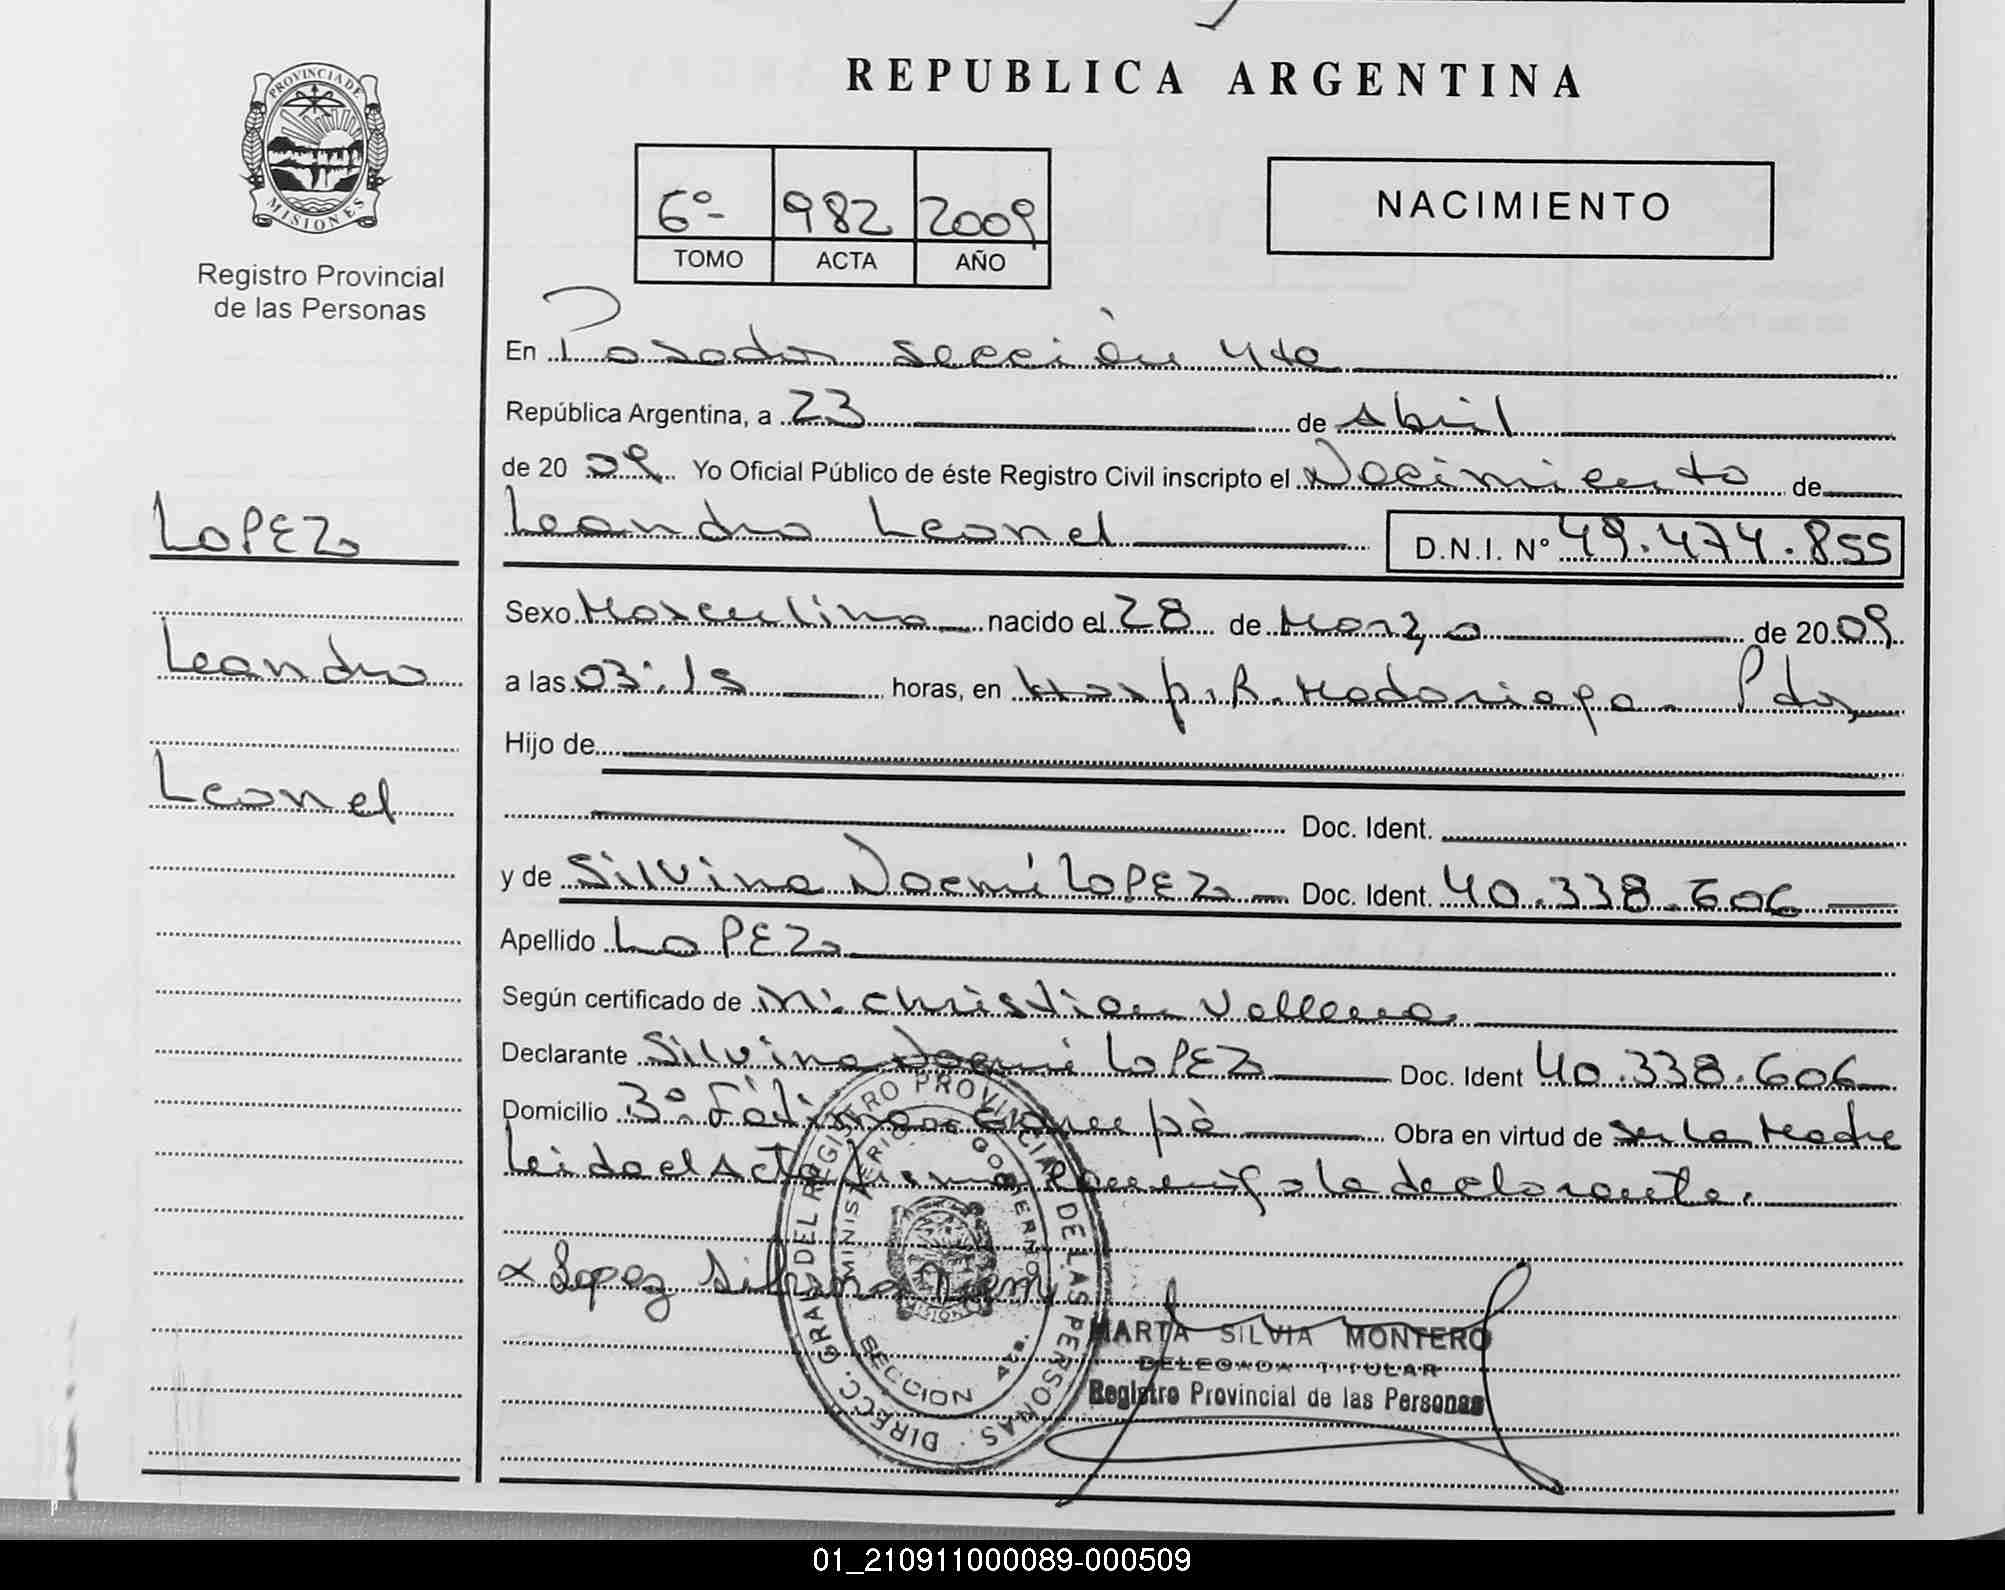 REPUBLICA ARGENTINA
PROVINCIA DE
MISIONES
Registro Provincial
de las Personas
6º- 982 2009
TOMO ACTA AÑO
NACIMIENTO
En Posadas sección 4ta
República Argentina, a 23 de Abril
de 2009 Yo Oficial Público de éste Registro Civil inscripto el Nacimiento de
Leandro Leonel D.N.I. Nº 49.474.855
LOPEZ
Leandro
Leonel
Sexo Masculino nacido el 28 de Marzo de 2009
a las 03:15 horas, en Hosp. R. Madariaga - Pdas
Hijo de
Doc. Ident.
y de Silvina Noemí LOPEZ Doc. Ident. 40.338.606
Apellido LOPEZ
Según certificado de M. Christian
Declarante Silvina Noemí LOPEZ Doc. Ident 40.338.606
Domicilio 3º Fátima Obra en virtud de ser la Madre
Leida el Acta firma la declarante.
x Lopez Silvina Noemi
DIREC. GRAL DEL REGISTRO PROVINCIAL DE LAS PERSONAS
MINISTERIO DE GOBIERNO
SECCION 4ta.
MARTA SILVIA MONTERO
DELEGADA TITULAR
Registro Provincial de las Personas
01_210911000089-000509